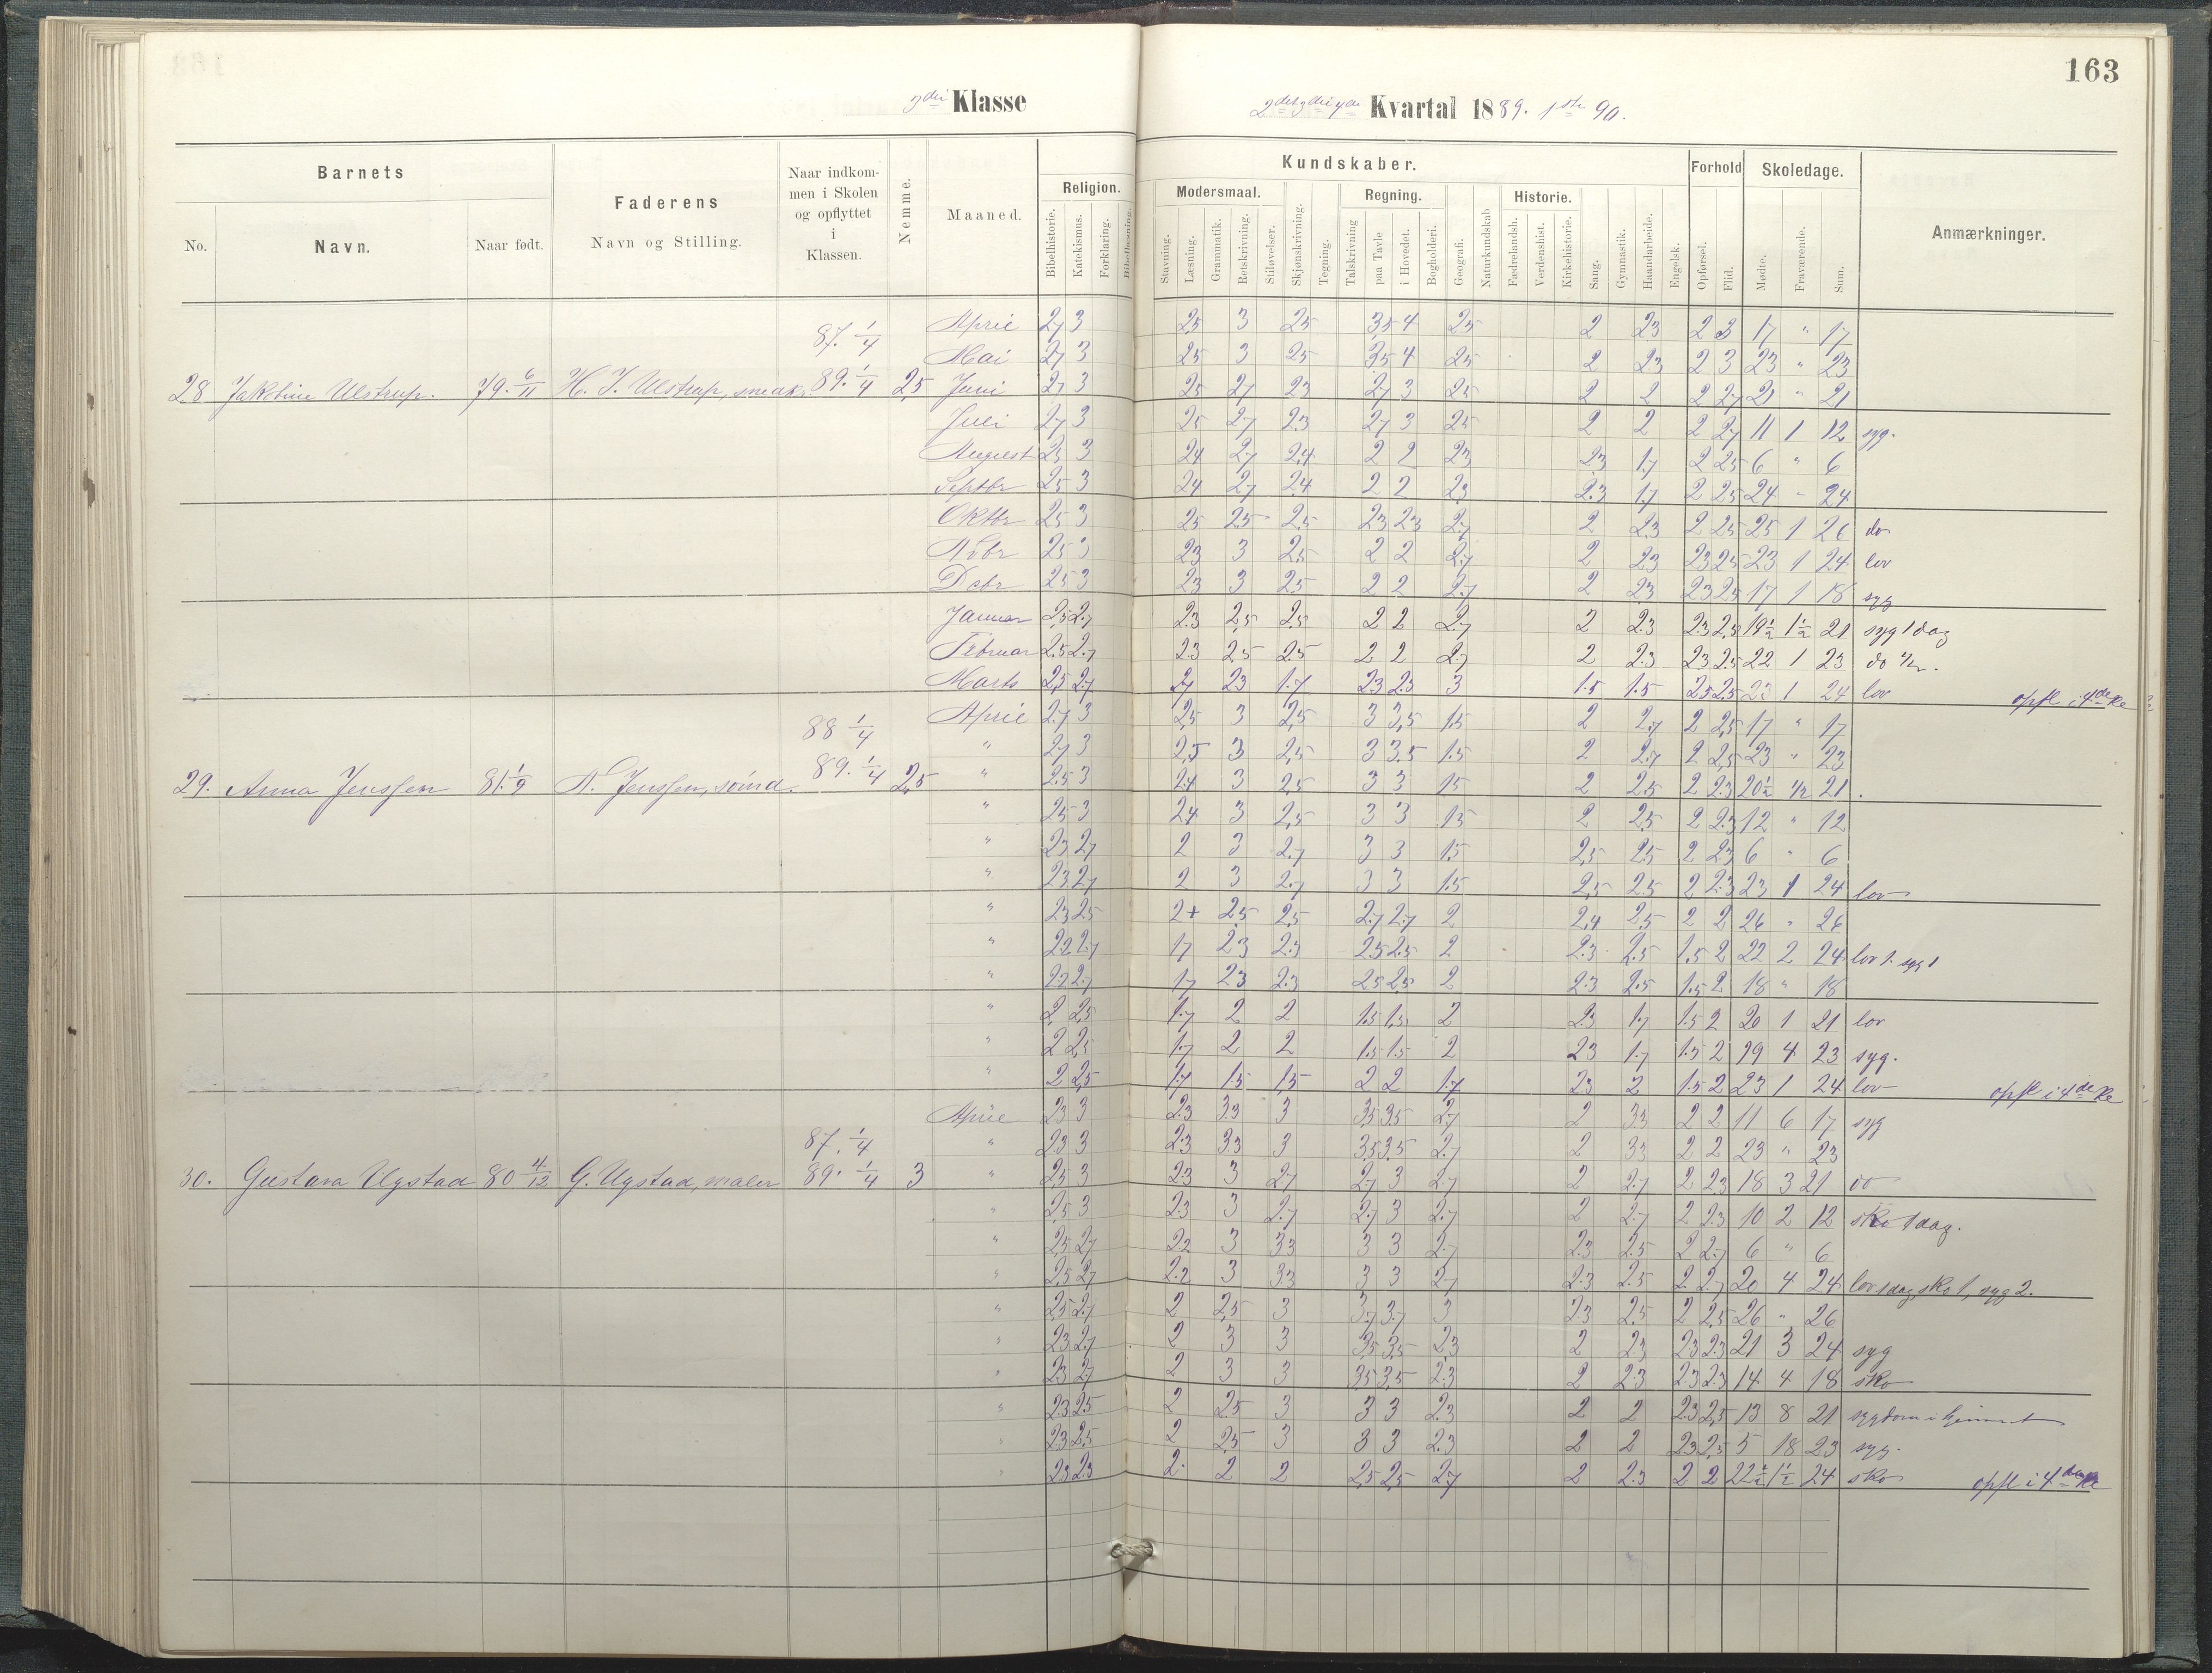 163
3die Klasse
2det 3die 4de Kvartal 1889. 1ste 90.
Barnets
No.
Navn.
Naar født.
Faderens
Navn og Stilling.
Naar indkom-
men i Skolen
og opflyttet
i
Klassen.
Nemme.
Maaned.
Kundskaber.
Religion.
Bibelhistorie.
Katekismus.
Forklaring.
Bibellæsning.
Modersmaal.
Stavning.
Læsning.
Grammatik.
Retskrivning.
Stiløvelser.
Skjønskrivning.
Tegning.
Regning.
Talskrivning
paa Tavle
i Hovedet.
Bogholderi.
Geografi.
Naturkundskab
Historie.
Fædrelandsh.
Verdenshist.
Kirkehistorie.
Sang.
Gymnastik.
Haandarbeide.
Engelsk.
Forhold
Opførsel.
Flid.
Skoledage.
Mødte.
Fraværende.
Sum.
Anmærkninger.
April 2,7 3 2,5 3 2,5 3,5 4 2,5 2 2,3 2 3 17 " 17
87. 1/4
Mai 2,7 3 2,5 3 2,5 3,5 4 2,5 2 2,3 2 3 23 " 23
28 Jakobine Ulstrup. 79. 6/11 H. J. Ulstrup, snek. 89. 1/4 2,5 Juni 2,7 3 2,5 2,7 2,3 2,7 3 2,5 2 2 2 2,7 21 " 21
Juli 2,7 3 2,5 2,7 2,3 2,7 3 2,5 2 2 2 2,7 11 1 12 syg.
August 2,5 3 2,4 2,7 2,4 2 2 2,3 2,3 1,7 2 2,5 6 " 6
Septbr 2,5 3 2,4 2,7 2,4 2 2 2,3 2,3 1,7 2 2,5 24 " 24
Oktbr 2,5 3 2,5 2,5 2,5 2,3 2,3 2,7 2 2,3 2 2,5 25 1 26 do
Novbr 2,5 3 2,3 3 2,5 2 2 2,7 2 2,3 2,3 2,5 23 1 24 lov
Decbr 2,5 3 2,3 3 2,5 2 2 2,7 2 2,3 2,3 2,5 17 1 18 syg
Januar 2,5 2,7 2,3 2,5 2,5 2 2 2,7 2 2,3 2,3 2,5 19 1/2 1 1/2 21 syg 1 dag
Februar 2,5 2,7 2,3 2,5 2,5 2 2 2,7 2 2,3 2,3 2,5 22 1 23 do 1/2.
Marts 2,5 2,7 2,7 2,3 1,7 2,3 2,3 3 1,5 1,5 2,5 2,5 23 1 24 lov opfl i 4de Kl
April 2,7 3 2,5 3 2,5 3 3,5 1,5 2 2,7 2 2,5 17 " 17
88 1/4
" 2,7 3 2,5 3 2,5 3 3,5 1,5 2 2,7 2 2,5 23 " 23
29. Anna Jenssen 81. 1/9 N. Jenssen, sømd. 89. 1/4 2,5 " 2,5 3 2,4 3 2,5 3 3 1,5 2 2,5 2 2,3 20 1/2 1/2 21.
" 2,5 3 2,4 3 2,5 3 3 1,5 2 2,5 2 2,3 12 " 12
" 2,3 2,7 2 3 2,7 3 3 1,5 2,5 2,5 2 2,3 6 " 6
" 2,3 2,7 2 3 2,7 3 3 1,5 2,5 2,5 2 2,3 23 1 24 lov
" 2,3 2,5 2+ 2,5 2,5 2,7 2,7 2 2,4 2,5 2 2 26 " 26
" 2,2 2,7 1,7 2,3 2,3 2,5 2,5 2 2,3 2,5 1,5 2 22 2 24 lov 1. syg 1
" 2,2 2,7 1,7 2,3 2,3 2,5 2,5 2 2,3 2,5 1,5 2 18 " 18
" 2 2,5 1,7 2 2 1,5 1,5 2 2,3 1,7 1,5 2 20 1 21 lov
" 2 2,5 1,7 2 2 1,5 1,5 2 2,3 1,7 1,5 2 19 4 23 syg.
" 2 2,5 1,7 1,5 1,5 2 2 1,7 2,3 2 1,5 2 23 1 24 lov opfl i 4de Kl
April 2,3 3 2,3 3,3 3 3,5 3,5 2,7 2 3,3 2 2 11 6 17 syg
87. 1/4
" 2,3 3 2,3 3,3 3 3,5 3,5 2,7 2 3,3 2 2 23 " 23
30. Gustava Ugstad 80 4/12 G. Ugstad, maler 89. 1/4 3 " 2,5 3 2,3 3 2,7 2,7 3 2,7 2 2,7 2 2,3 18 3 21 do
" 2,5 3 2,3 3 2,7 2,7 3 2,7 2 2,7 2 2,3 10 2 12 sko 1 dag.
" 2,5 2,7 2,2 3 3,3 3 3 2,7 2,3 2,5 2 2,7 6 " 6
" 2,5 2,7 2,2 3 3,3 3 3 2,7 2,3 2,5 2 2,7 20 4 24 lov 1 dag, sko 1, syg 2.
" 2,5 2,7 2 2,5 3 3,7 3,7 3 2,3 2,5 2 2,5 26 " 26
" 2,3 2,7 2 3 3 3,5 3,5 2,3 2 2,3 2,3 2,3 21 3 24 syg
" 2,3 2,7 2 3 3 3,5 3,5 2,3 2 2,3 2,3 2,3 14 4 18 sko
" 2,3 2,5 2 2,5 3 3 3 2,3 2 2 2,3 2,5 13 8 21 sygdom i hjemmet
" 2,3 2,5 2 2,5 3 3 3 2,3 2 2 2,3 2,5 5 18 23 syg.
" 2,3 2,3 2 2 2 2,5 2,5 2,7 2 2,3 2 2 22 1/2 1 1/2 24 sko opfl i 4de Kl